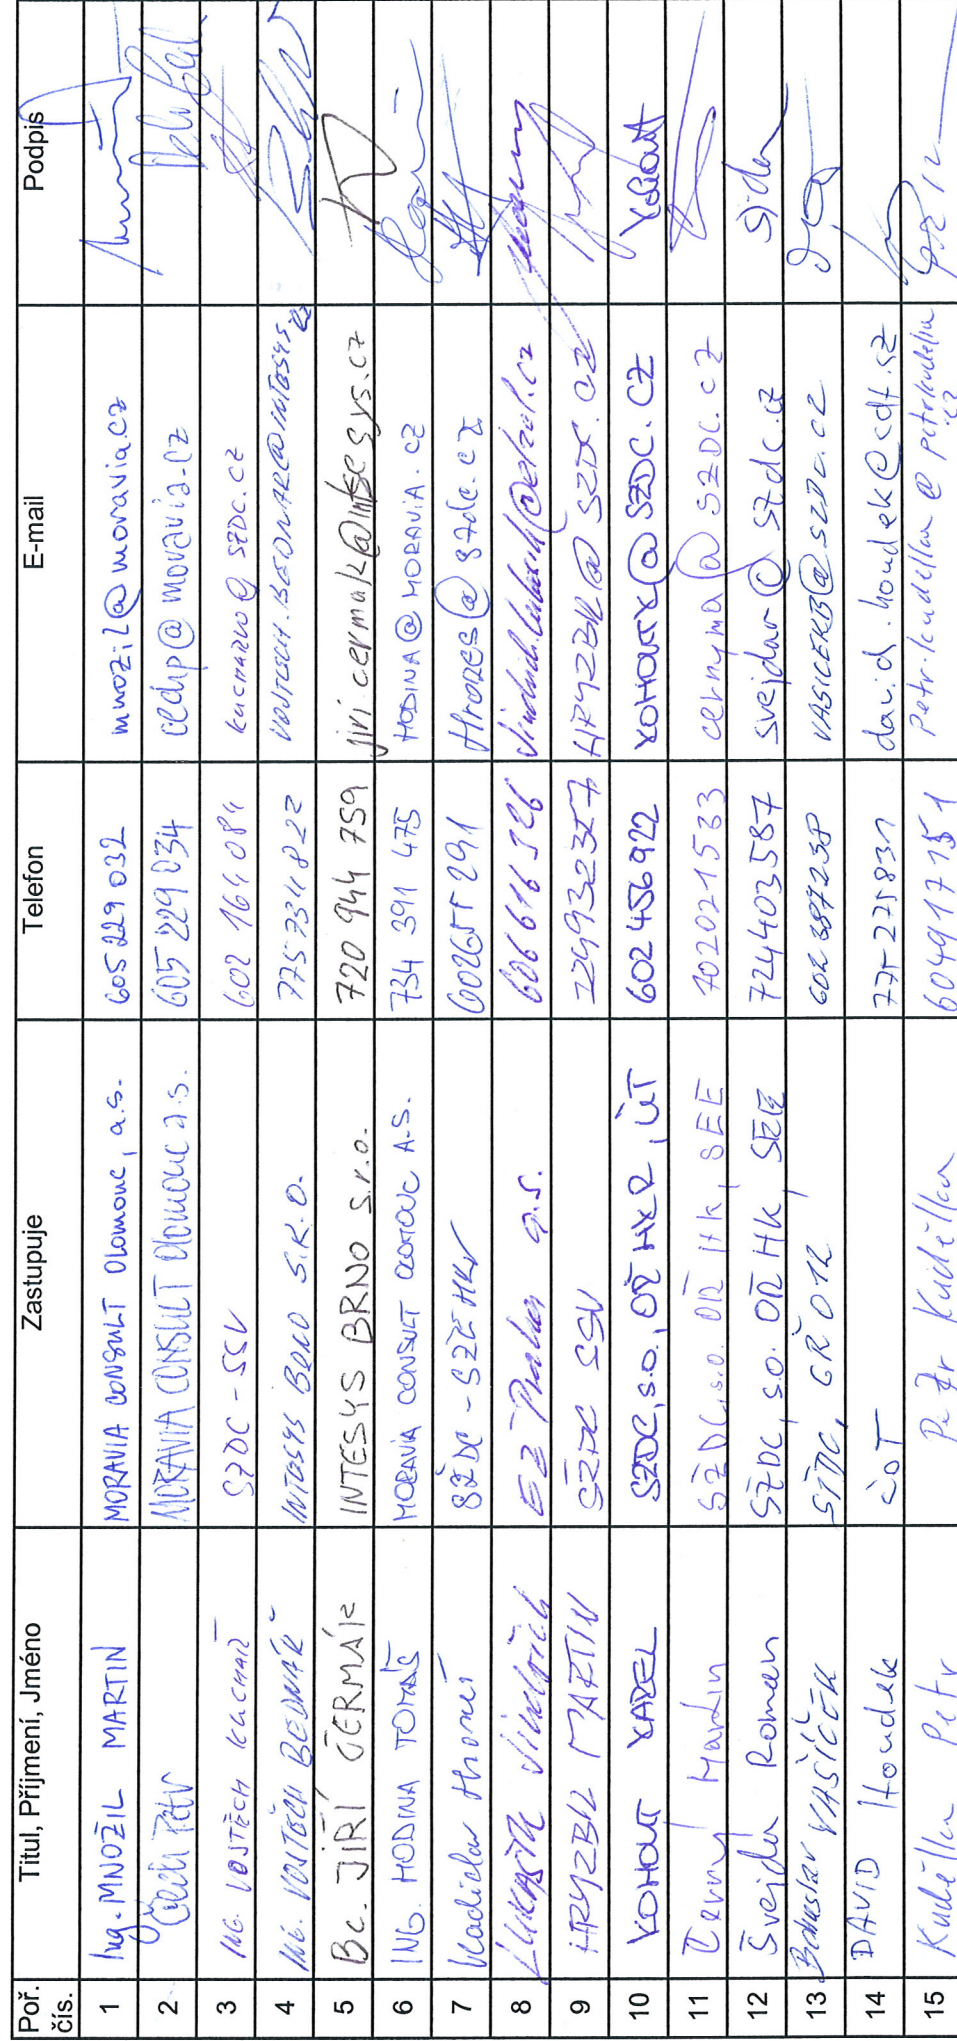 Poř. čís. Titul, Příjmení, Jméno Zastupuje Telefon E-mail Podpis
1 Ing. MNOŽIL MARTIN MORAVIA CONSULT Olomouc, a.s. 605 229 032 mnozil@moravia.cz
2 Čech Petr MORAVIA CONSULT Olomouc a.s. 605 229 034 cechp@moravia.cz
3 ING. VOJTĚCH KUCHAŘ SŽDC - SSV 602 164 084
4 ING. VOJTĚCH BEDNÁŘ INTESYS BRNO S.R.O. 775 734 822 VOJTECH.BEDNAR@INTESYS.CZ
5 Bc. JIŘÍ ČERMÁK INTESYS BRNO s.r.o. 720 944 759 jiri.cermak@intesys.cz
6 ING. HODINA TOMÁŠ MORAVIA CONSULT OLOMOUC A.S. 734 391 475 HODINA@MORAVIA.CZ
7 Ladislav SŽDC - 602655291 @szdc.cz
8 Jindřich EŽ Praha a.s. 606616326
9 HRYZBIL MARTIN SŽDC SSV @SZDC.CZ
10 KOHOUT KAREL SŽDC, s.o., OŘ HKR, ÚT 602 456 922 KOHOUTK@SZDC.CZ Kohout
11 Černý Martin SŽDC, s.o. OŘ HK, SEE 702021533 cernyma@SZDC.cz
12 Švejda Roman SŽDC, s.o. OŘ HK, SEE 724403587 svejdar@szdc.cz
13 Bohuslav VAŠÍČEK SŽDC, GŘ O12 602387238 VASICEKB@SZDC.CZ
14 DAVID Houdek ČDT david.houdek@cdt.cz
15 Kudělka Petr Petr Kudělka 604917151 petr.kudelka@petrkudelka.cz